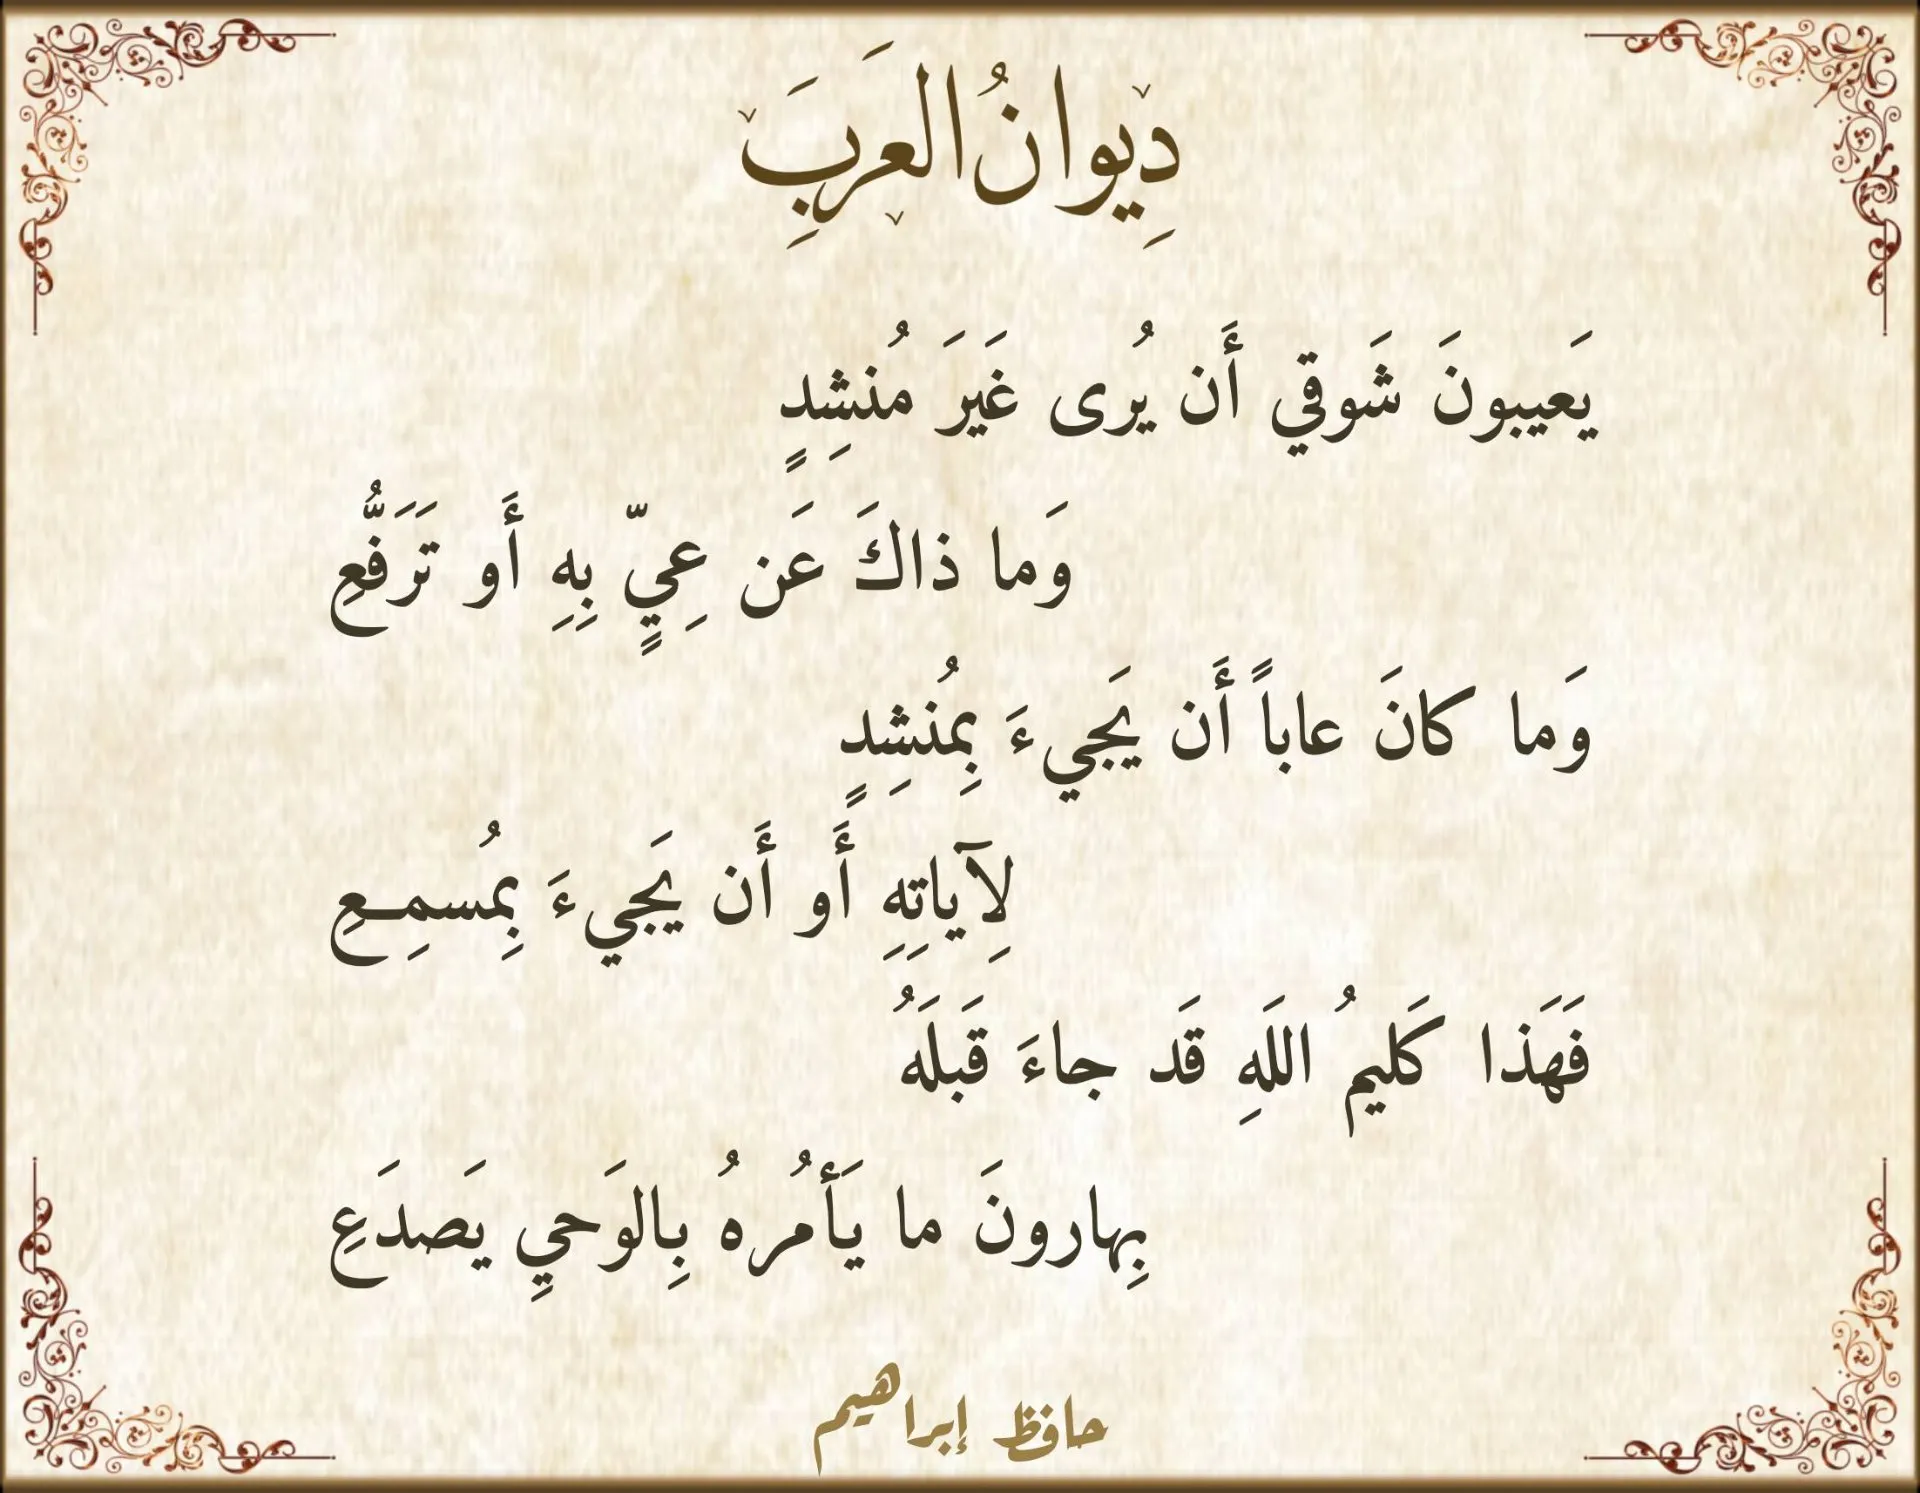 دِيوانُ العَرَبِ
يَعيبونَ شَوقي أَن يُرى غَيرَ مُنشِدٍ
وَما ذاكَ عَن عِيٍّ بِهِ أَو تَرَفُّعِ
وَما كانَ عاباً أَن يَجيءَ بِمُنشِدٍ
لِآياتِهِ أَو أَن يَجيءَ بِمُسمِعِ
فَهَذا كَليمُ اللَهِ قَد جاءَ قَبلَهُ
بِهارونَ ما يَأمُرهُ بِالوَحيِ يَصدَعِ
حافظ إبراهيم